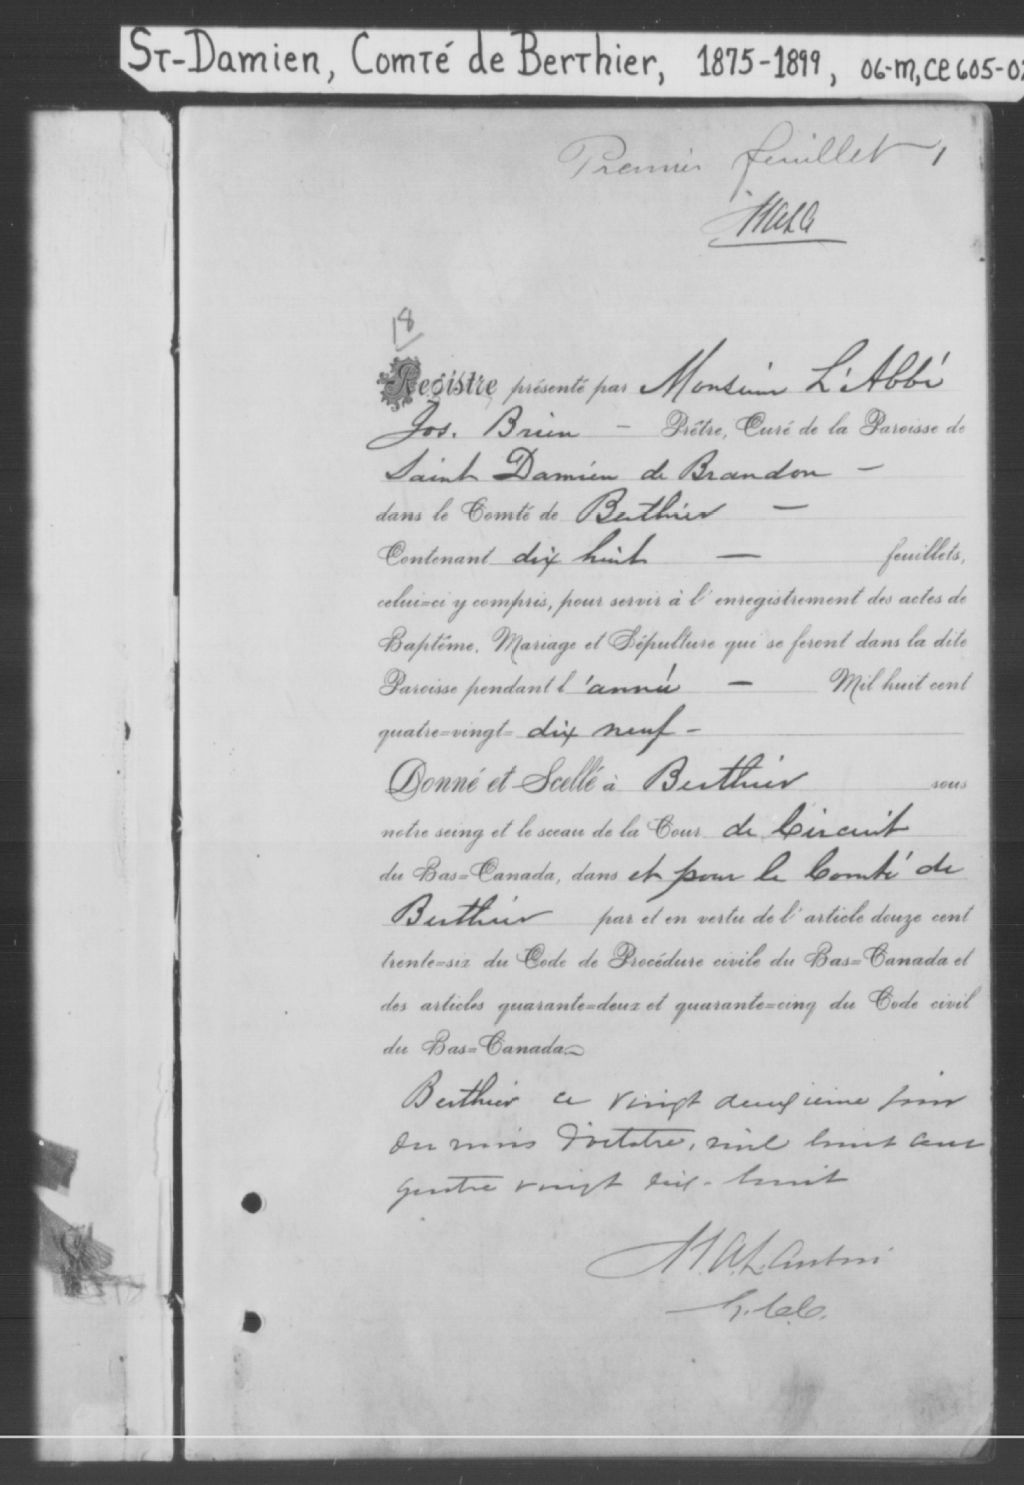 St-Damien, Comté de Berthier, 1875-1899, 06-M, CE605-0
Premier feuillet 1
18
Registre présenté par Monsieur L'Abbé
Jos. Brien — Prêtre, Curé de la Paroisse de
Saint Damien de Brandon —
dans le Comté de Berthier —
Contenant dix huit — feuillets,
celui=ci y compris, pour servir à l'enregistrement des actes de
Baptême, Mariage et Sépulture qui se feront dans la dite
Paroisse pendant l'année — Mil huit cent
quatre=vingt= dix neuf —
Donné et Scellé à Berthier sous
notre seing et le sceau de la Cour de Circuit
du Bas=Canada, dans et pour le Comté de
Berthier par et en vertu de l'article douze cent
trente=six du Code de Procédure civile du Bas=Canada et
des articles quarante=deux et quarante=cinq du Code civil
du Bas=Canada.
Berthier ce vingt deuxième jour
du mois d'octobre, mil huit cent
quatre vingt dix-huit